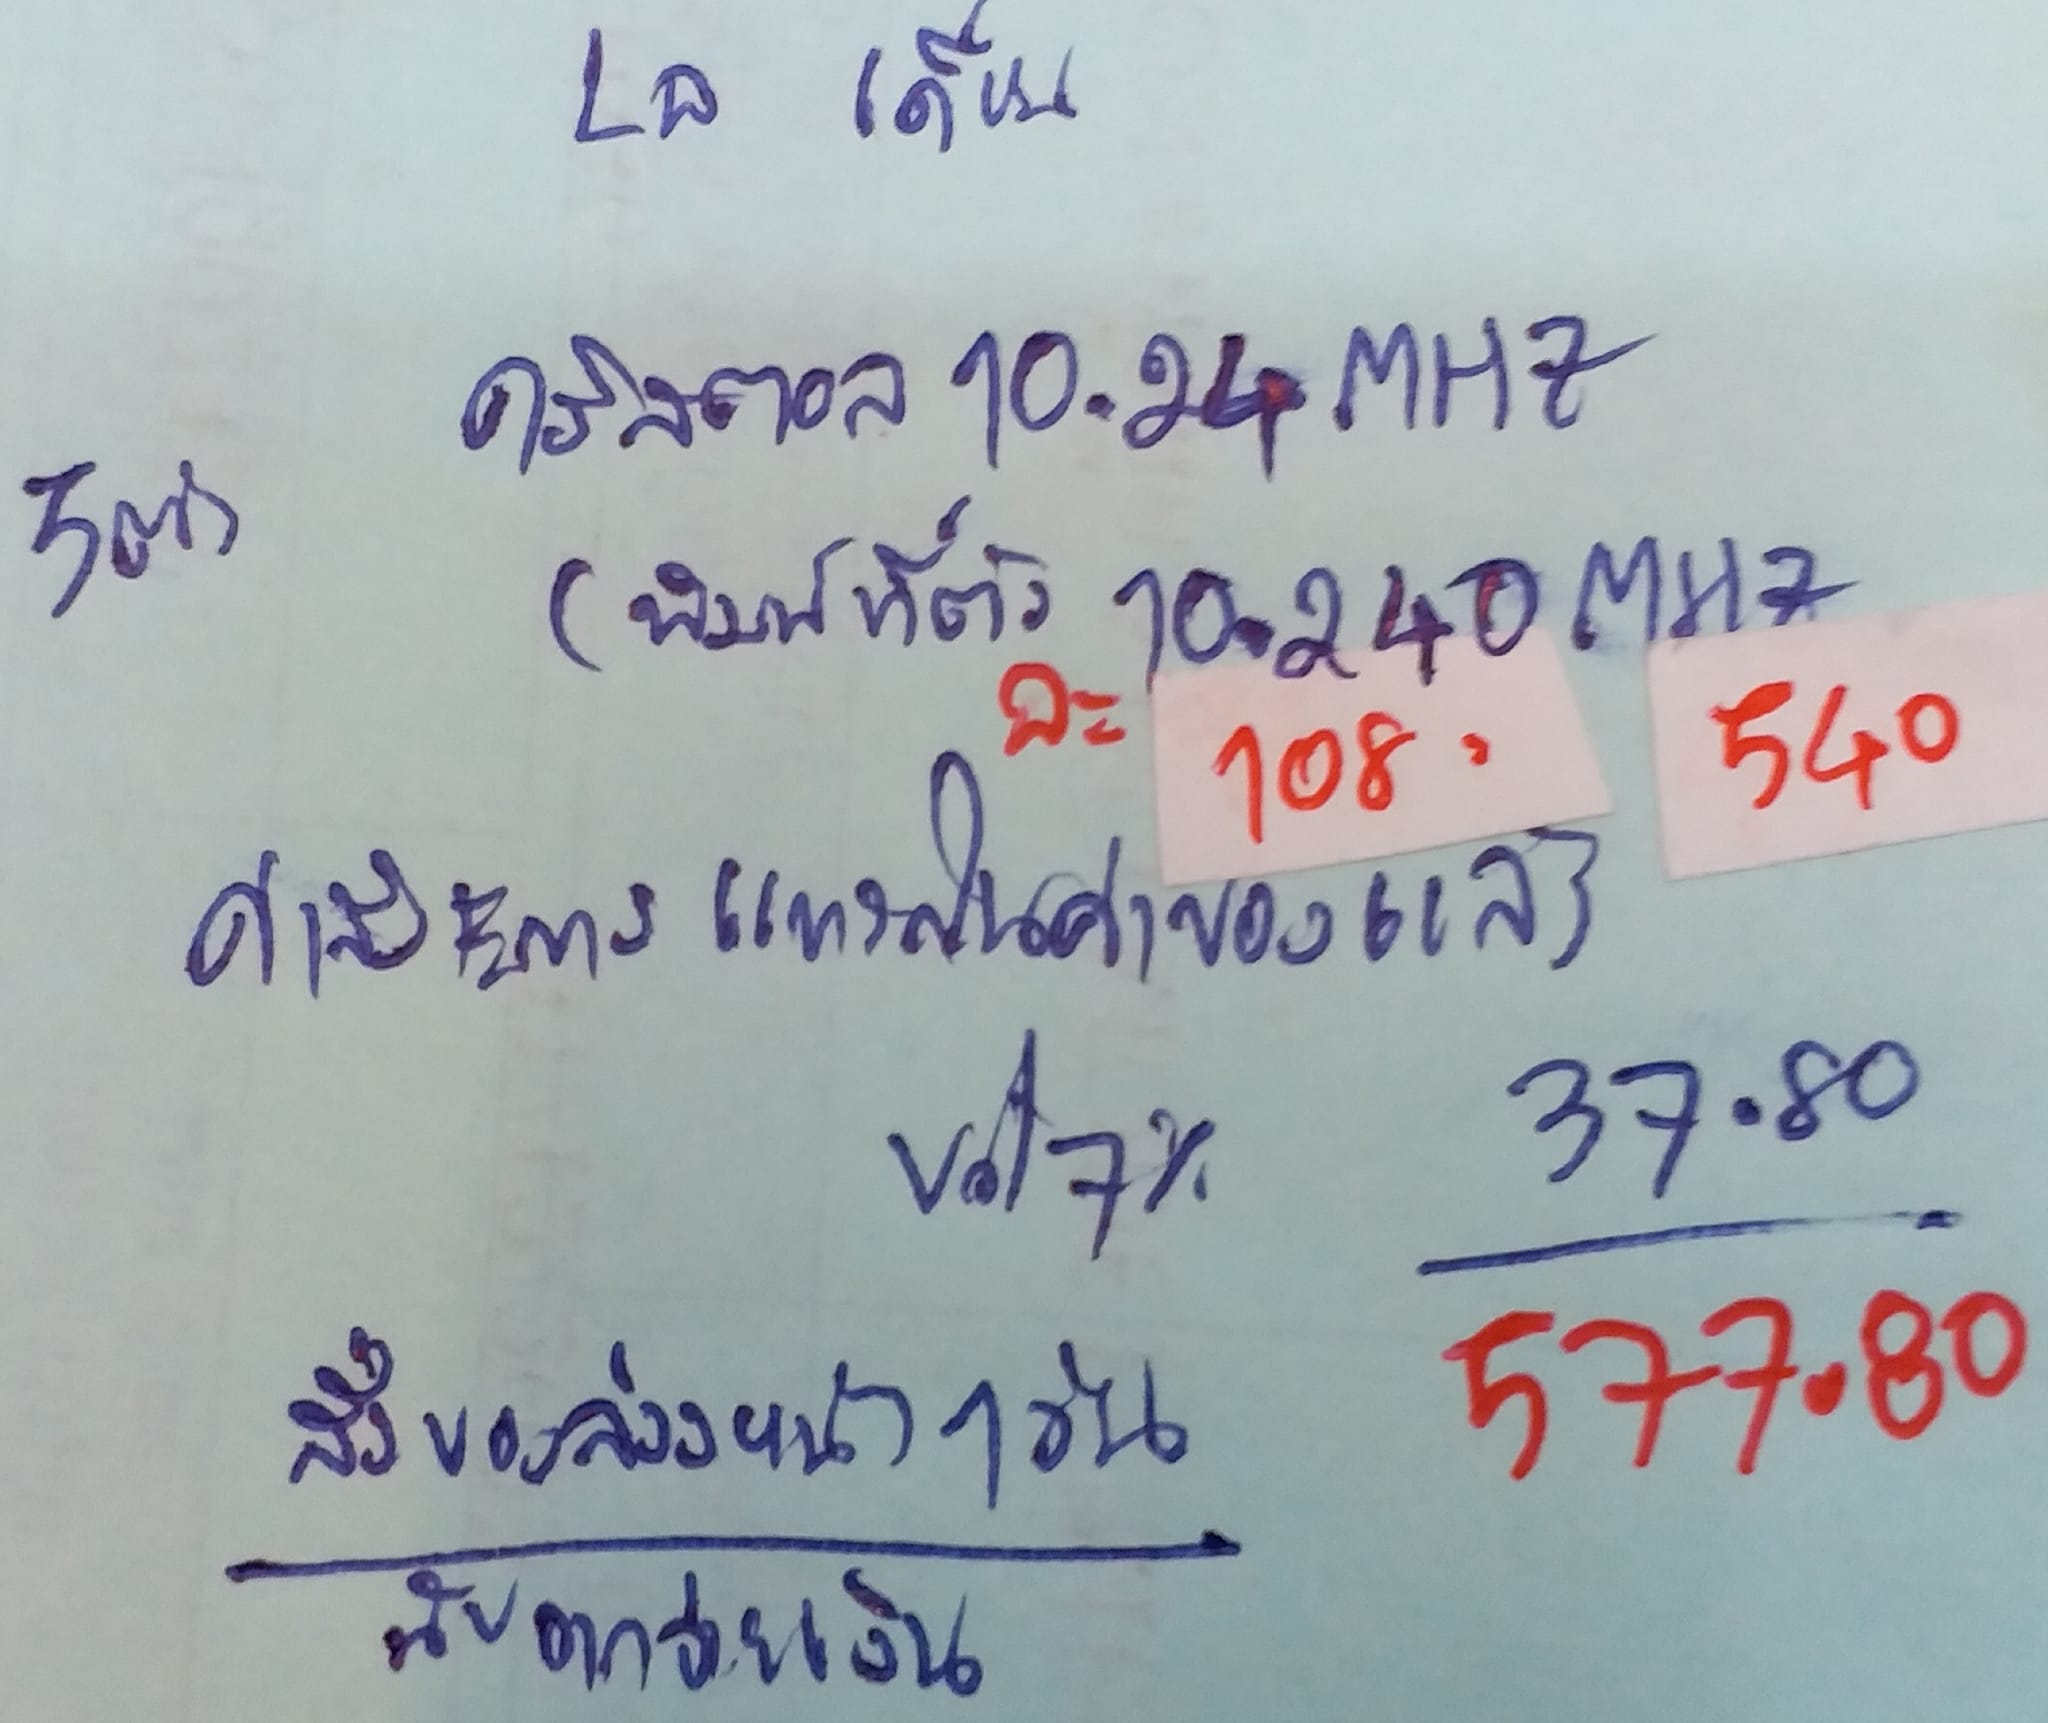 คริสตอล 10.24 MHZ
5 ตัว
(พิมพ์ที่ตัว 10.240 MHZ
ละ 108. 540
แทรกในค่าของแล้ว
Vat 7% 37.80
577.80
สั่งของล่วงหน้า 1 วัน
นับจากจ่ายเงิน